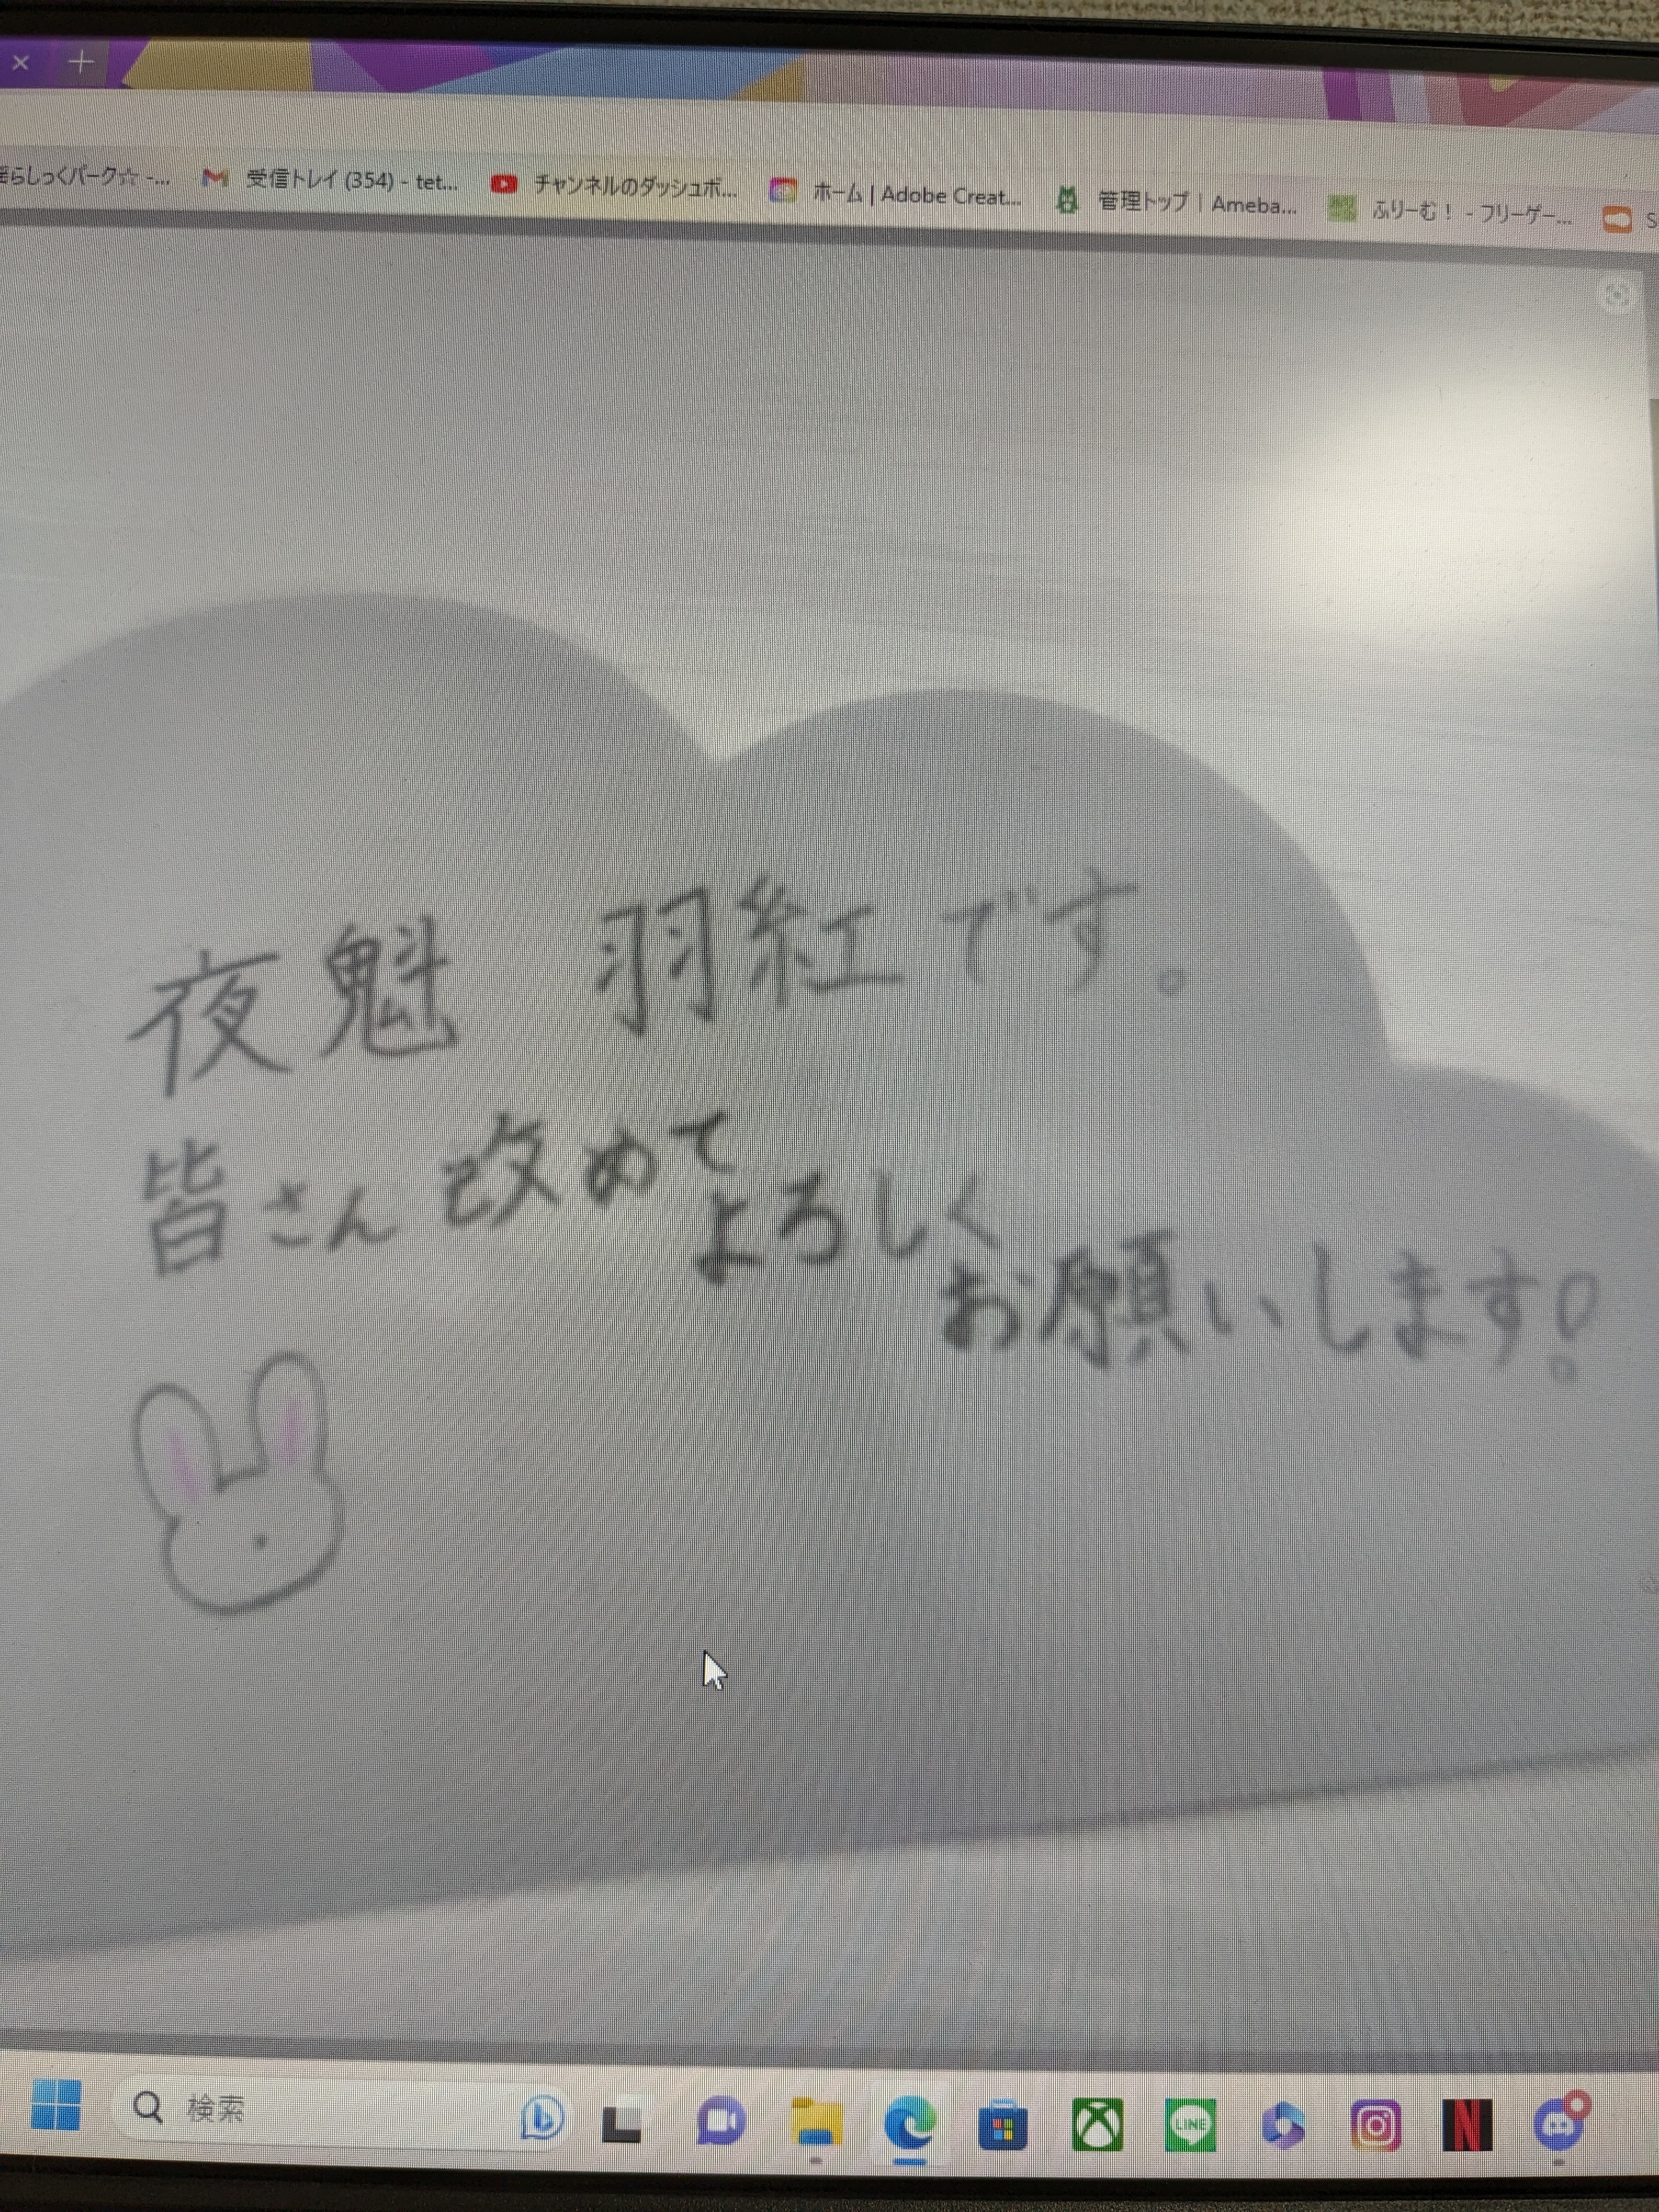 受信トレイ (354) - tet...
チャンネルのダッシュボ...
ホーム | Adobe Creat...
管理トップ | Ameba...
ふりーむ! - フリーゲー...
夜魁 羽紅です。
皆さん改めて
よろしく
お願いします!
検索
LINE